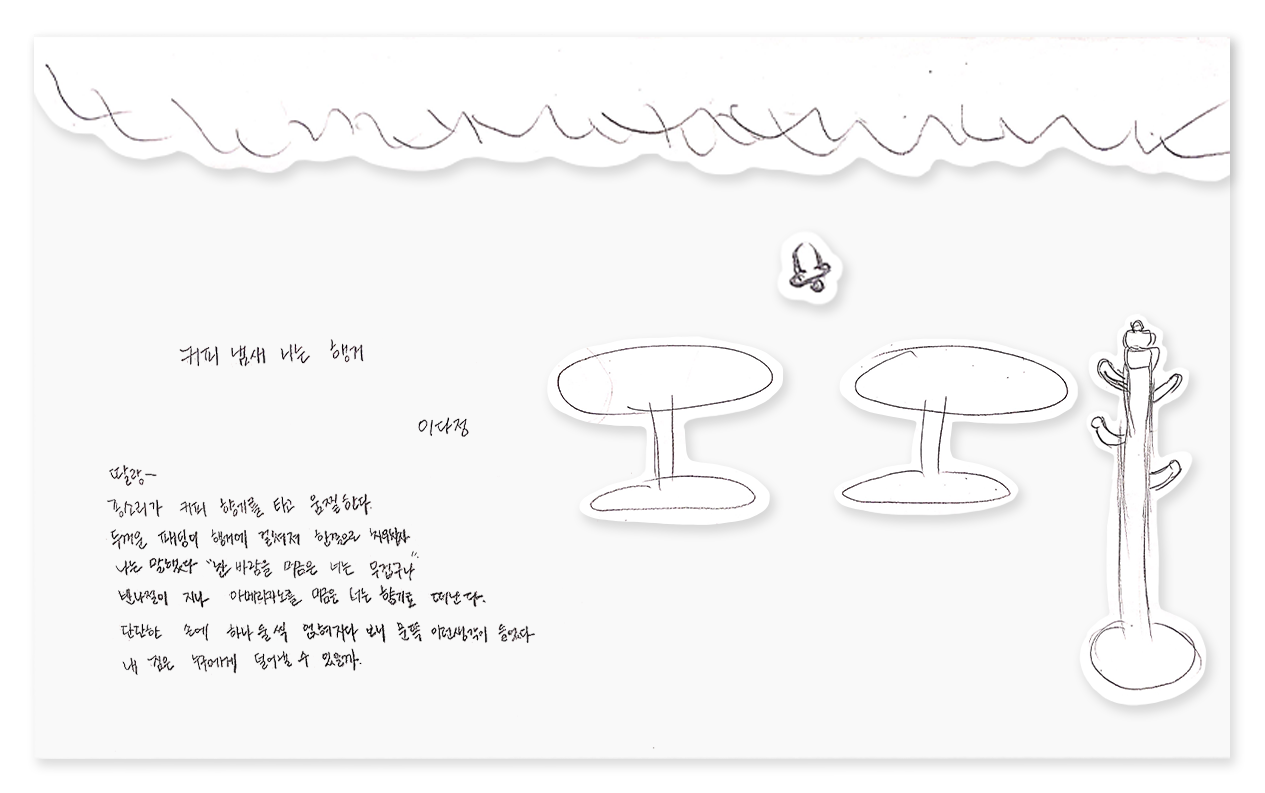 커피 냄새 나는 행거
이다정
딸랑~
종소리가 커피 향기를 타고 움찔한다.
두꺼운 패딩이 행거에 걸쳐져 한쪽으로
나는 말했다 "찬 바람을 머금은 너는 무겁구나".
반나절이 지나 아메리카노를 머금은 너는 향기로 떠난다.
단단한 손에 하나 둘 씩 얹혀지다 보니 문뜩 이런생각이 들었다
내 짐은 누구에게 덜어낼 수 있을까.